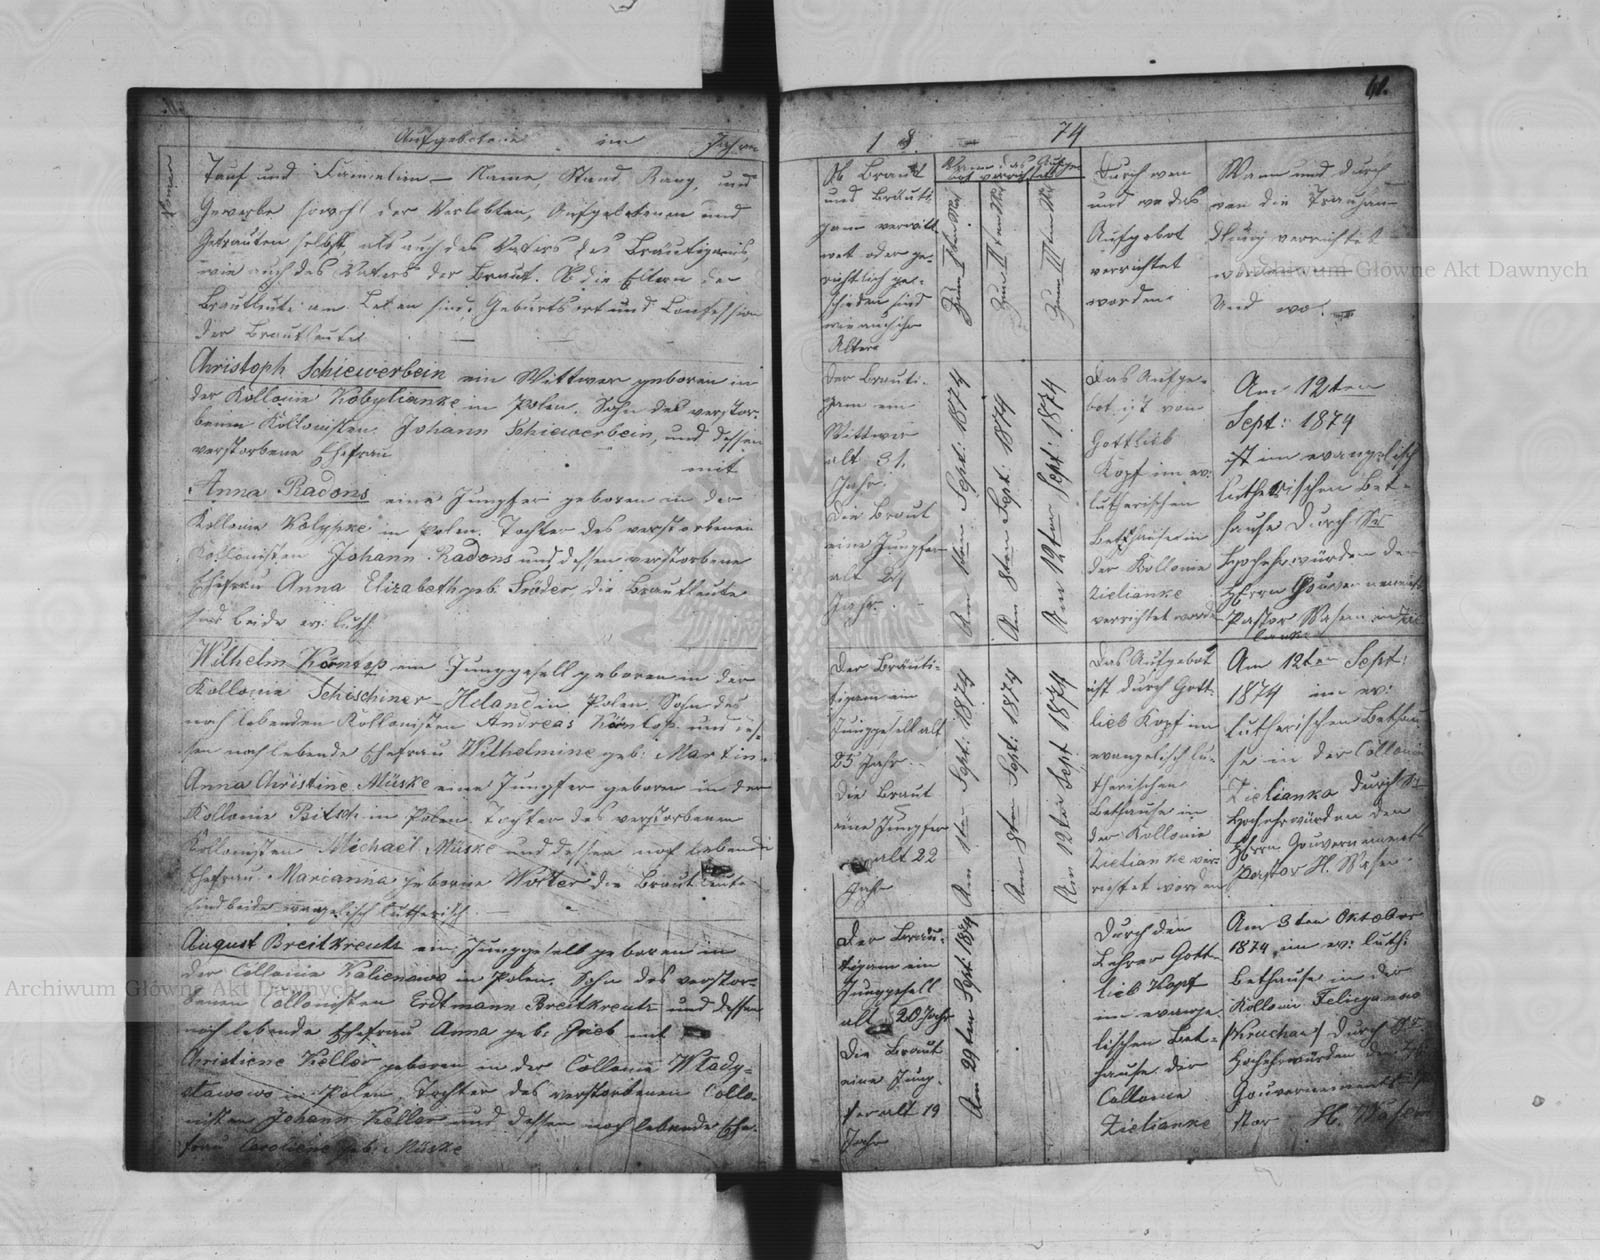 61.
Aufgebotene im Jahre
18 74
Numer
Tauf und Familien – Name, Stand, Rang, und
Gewerbe sowohl der Verlobten, Aufgebotenen und
Getrauten selbst, als auch des Vaters des Bräutigams,
wie auch des Vaters der Braut. Ob die Eltern der
Brautleute am Leben sind, Geburtsort und Confession
der Brautleute
Ob Braut
und Bräuti-
gam verwitt
wet oder ge-
richtlich ge-
schieden sind
wie auch ihr
Alter
Wann das Aufge
bot verrichtet
Zum Iten Mal
Zum IIten Mal
Zum IIIten Mal
Durch wen
und wo das
Aufgebot
verrichtet
worden
Wann und durch
wen die Trauhan-
dlung verrichtet
worden
Und wo.
Christoph Schiewerbein ein Wittwer geboren in
der Kollonie Kobylianke in Polen. Sohn des verstor-
benen Kollonisten Johann Schiewerbein, und dessen
verstorbene Ehefrau
mit
Anna Radons eine Jungfer geboren in der
Kollonie in Polen. Tochter des verstorbenen
Kollonisten Johann Radons und dessen verstorbene
Ehefrau Anna Elizabeth geb. die Brautleute
sind beide ev: luth:
Der Bräuti-
gam ein
Wittwer
alt 31.
Jahr.
Die Braut
eine Jungfer
alt
Jahr.
Am 1ten Sept: 1874
Am 8ten Sept. 1874
Am 12ten Sept: 1874
Das Aufge-
bot ist von
Gottlieb
Kopf im ev:
lutherischen
Bethause in
der Kollonie
Zielianke
verrichtet word
Am 12ten
Sept: 1874
ist im evangelisch
lutherischen Bet-
hause durch Sr
Hochehrwürden den
Herrn Gouvernements
Pastor Wasem in Zie
lianke
Wilhelm Körntop ein Junggesell geboren in der
Kollonie Schischiner-Holand in Polen. Sohn des
noch lebenden Kollonisten Andreas Körntop und des-
sen noch lebende Ehefrau Wilhelmine geb: Martin
Anna Christine Müske eine Jungfer geboren in der
Kollonie Bitsch in Polen. Tochter des verstorbenen
Kollonisten Michael Müske und dessen noch lebende
Ehefrau Marianna geborene Wolter die Brautleute
sind beide evangelisch lutherisch
Der Bräuti-
tigam ein
Junggesell alt
25 Jahr.
Die Braut
eine Jungfer
alt 22
Jahr
Am 1ten Sept: 1874
Am 8ten Sept: 1874
Am 12ten Sept 1874
Das Aufgebot
ist durch Gott-
lieb Kopf im
evangelisch lu-
therischen
Bethause in
der Kollonie
Zielianke ver-
richtet worden
Am 12ten Sept:
1874 im ev:
lutherischen Bethau
se in der Collonie
Zielianka durch Sr
Hochehrwürden den
Herrn Gouvernements
Pastor H. Wasem.
August Breitkreutz ein Junggesell geboren in
der Collonie Kalienowo in Polen. Sohn des verstor-
benen Collonisten Erdtmann Breitkreutz und dessen
noch lebende Ehefrau Anna geb: Grieb mit
Christiene Keller geboren in der Collonie Wlady-
slawowo in Polen. Tochter des verstorbenen Collo-
nisten Johann Keller und dessen noch lebende Ehe-
frau Caroliene geb: Müske
Der Bräu-
tigam ein
Junggesell
alt 20 Jahr
Die Braut
eine Jung-
fer alt 19
Jahr
Am 29ten Sept 1874
Durch den
Lehrer Gott-
lieb Kopf
im evange-
lischen Bet-
hause der
Collonie
Zielianke
Am 3ten Oktober
1874 im ev: luth:
Bethause in der
Kolloni Felicyanow
(Kruchae) durch Sr
Hochehrwürden den
Gouvernements Pa
stor H. Wasem
Archiwum Główne Akt Dawnych
Archiwum Główne Akt Dawnych